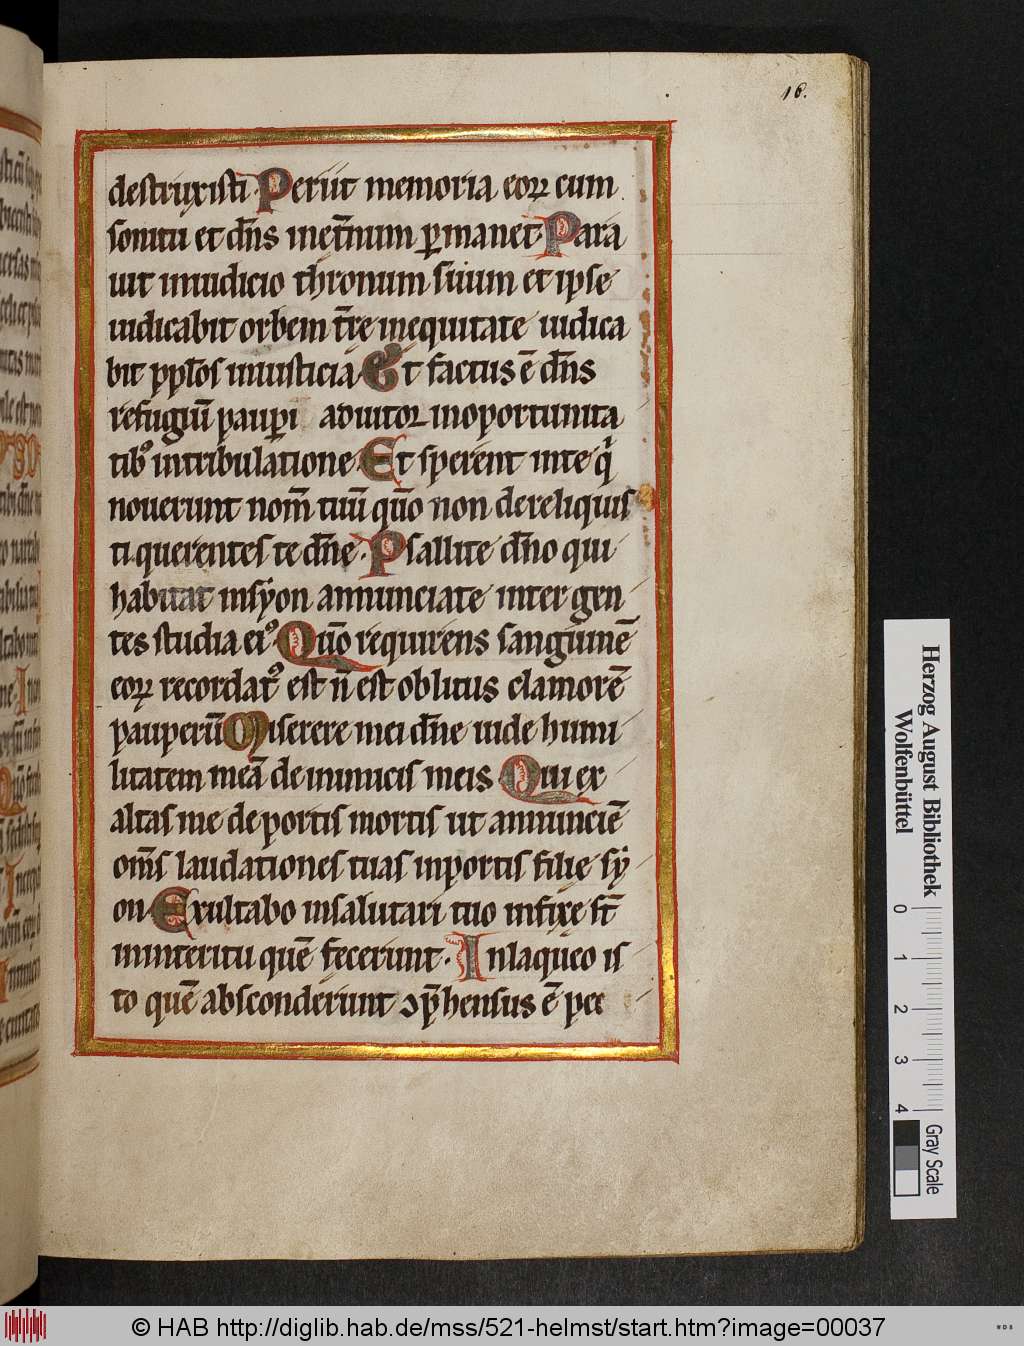 16.
destruxisti. Periit memoria eoꝝ cum
sonitu et dn̄s inet̄num ꝑmanet. Para
uit iniudicio thronum suum et ipse
iudicabit orbem tr̄e inequitate iudica
bit ppl̄os iniusticia Et factus ē dn̄s
refugiū pauꝑi adiutor inoportunita
tibꝰ intribulatione. Et sperent inte q̇
nouerunt nom̄ tuū quō non dereliquis
ti querentes te dn̄e. Psallite dn̄o qui
habitat insẏon annunciate inter gen
tes studia eiꝰ Quō requirens sanguinē
eoꝝ recordatꝰ est n̄ est oblitus clamorē
pauperū Miserere mei dn̄e uide humi
litatem meā de inimicis meis Qui ex
altas me de portis mortis ut annunciē
om̄s laudationes tuas inportis filię sẏ
on Exultabo insalutari tuo infixę st̄
ininteritu quē fecerunt. Inlaqueo is
to quē absconderunt ↄp̄hensus ē pec
Herzog August Bibliothek
Wolfenbüttel
0 1 2 3 4
Gray Scale
© HAB http://diglib.hab.de/mss/521-helmst/start.htm?image=00037